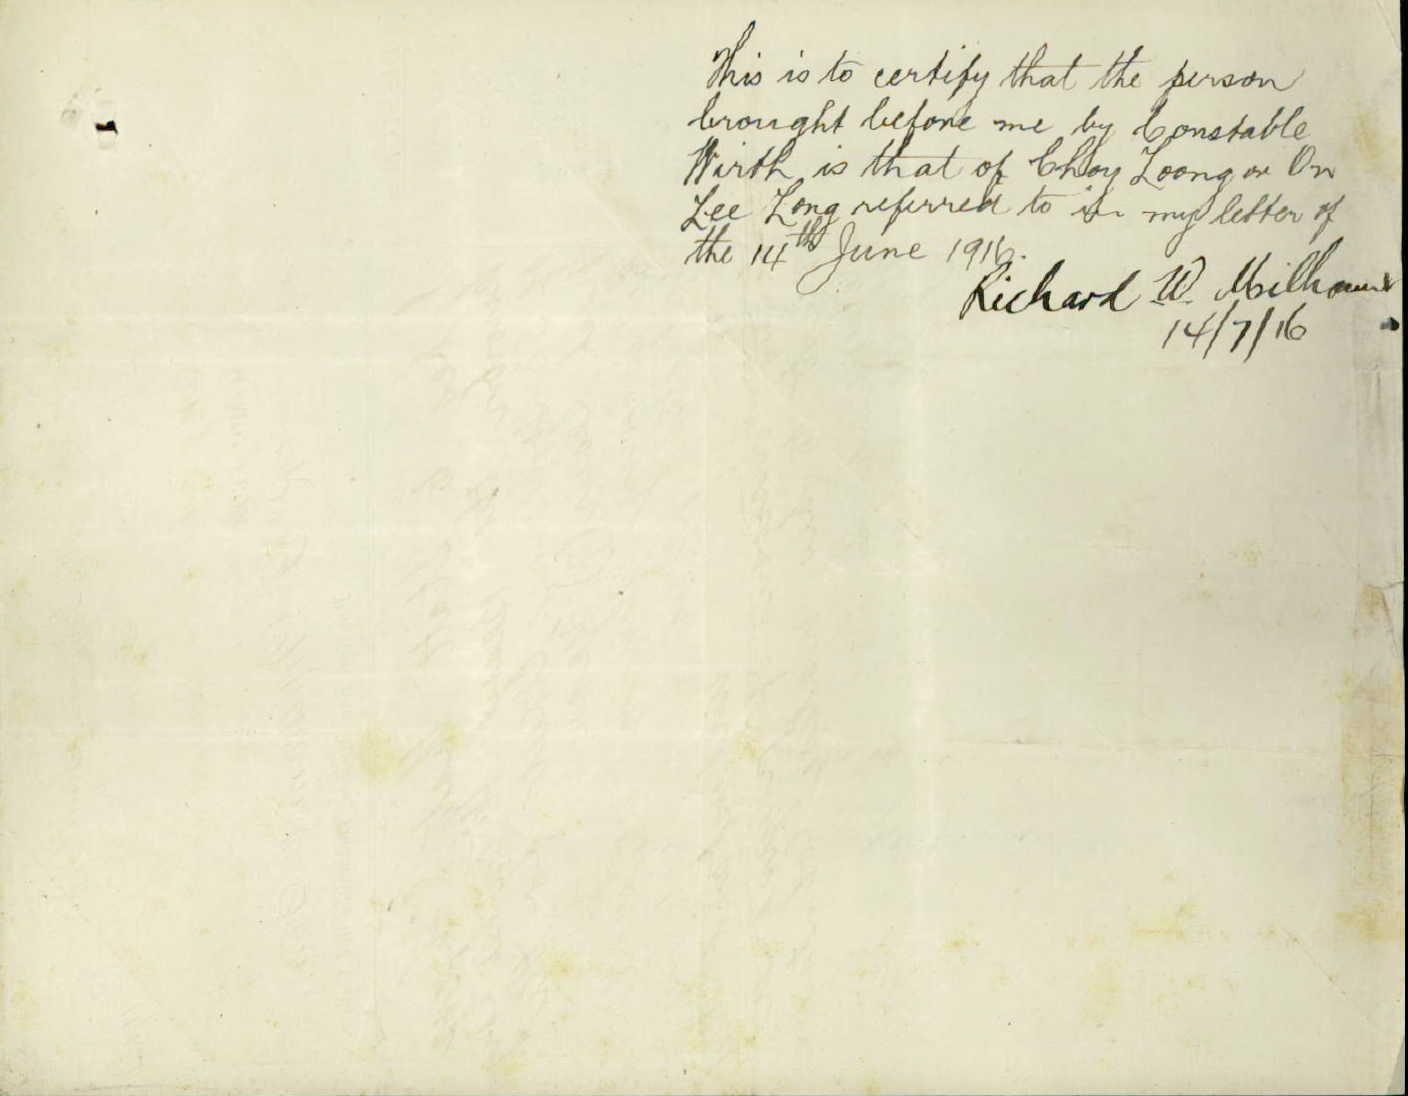 This is to certify that the person
brought before me by Constable
Wirth is that of Choy Loong or On
Lee Long referred to in my letter of
the 14th June 1916.
Richard W.
14/7/16